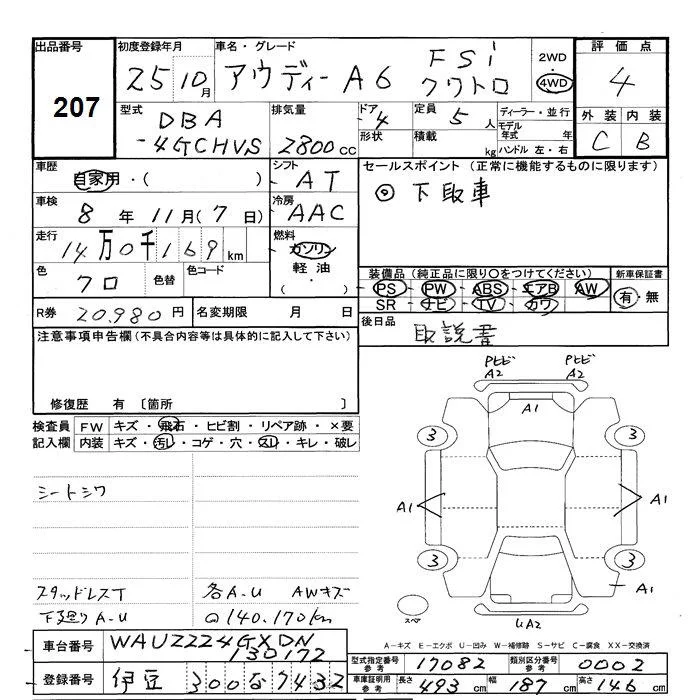 出品番号 207
初度登録年月 25 10月
車名・グレード アウディー A6 FSi クワトロ
2WD 4WD
評価点 4
外装 C 内装 B
型式 DBA -4GCHVS
排気量 2800cc
ドア 4 形状
定員 5人 積載 kg
ディーラー・並行
モデル年式 年
ハンドル 左・右
車歴 自家用・( )
シフト AT
車検 8年 11月(7日)
冷房 AAC
走行 14万0千169km
燃料 ガソリン
軽油・( )
色 クロ 色替 色コード
R券 20,980円 名変期限 月 日
セールスポイント (正常に機能するものに限ります)
◎ 下取車
装備品 (純正品に限り○をつけてください) 新車保証書
PS PW ABS エアB AW 有・無
SR ナビ TV カワ
後日品 取説書
注意事項申告欄(不具合内容等は具体的に記入して下さい)
修復歴 有 〔箇所 〕
検査員記入欄
FW キズ・飛石・ヒビ割・リペア跡・×要
内装 キズ・汚レ・コゲ・穴・スレ・キレ・破レ
シートシワ
スタッドレスT 各A-U AWキズ
下廻りA-U @140,170km
A2 A2
A1
3 3
A1 A1
3 3
A1
スペア UA2
A-キズ E-エクボ U-凹み W-補修跡 S-サビ C-腐食 XX-交換済
車台番号 WAUZZZ4GXDN130172
型式指定番号 参考 17082 類別区分番号 参考 0002
登録番号 伊豆 300な7432
車庫証明用 参考 長さ 493cm 幅 187cm 高さ 146cm